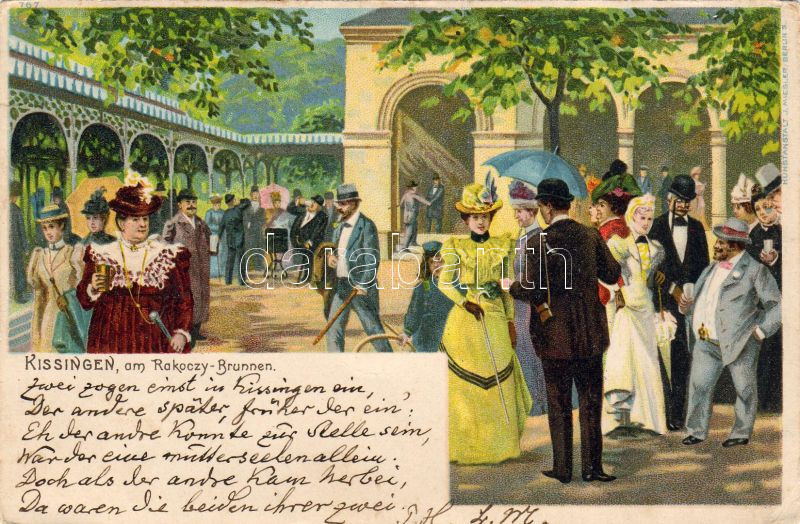 767
KUNSTANSTALT J. MIESLER, BERLIN S.
darabanth
KISSINGEN, am Rakoczy-Brunnen.
Zwei zogen einst in Kissingen ein,
Der andere später, früher der ein':
Eh der andre konnte zur Stelle sein,
War der eine mutterseelenallein.
Doch als der andre kam herbei,
Da waren die beiden ihrer zwei.
F. H. L. M.